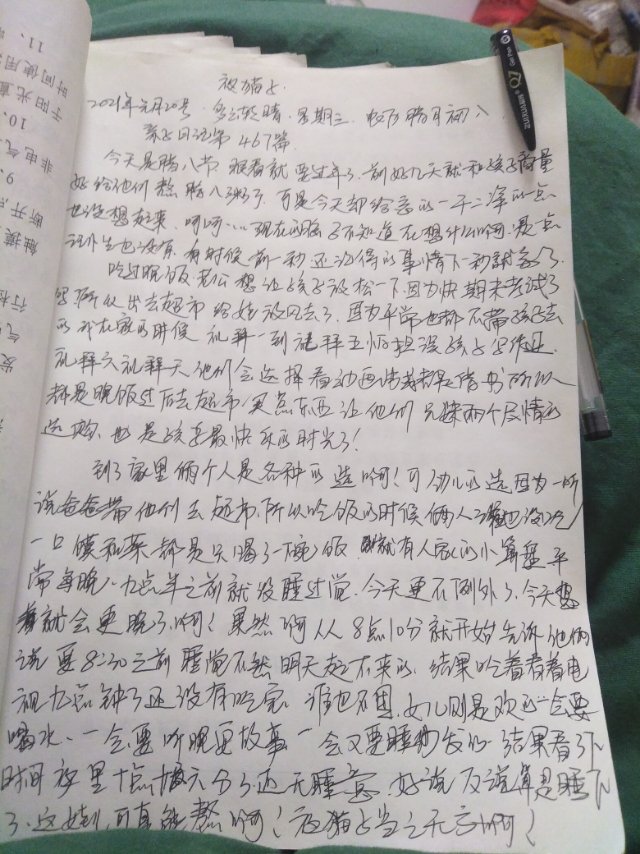 夜猫子
2021年元月20号 多云转晴 星期三 农历腊月初八
亲子日记第467篇
今天是腊八节 眼看就要过年了 前好几天就和孩子商量
好给他们熬腊八粥了 可是今天却给忘的一干二净的一点
也没想起来 呵呵…… 现在的脑子不知道在想什么啊 是一点
记性也没有 有时候前一秒还记得的事情下一秒就忘了
吃过晚饭老公想让孩子放松一下 因为快期末考试了
所以出去超市给她放风去了 因为平常也都不带孩子去
的 我在家的时候 礼拜一到礼拜五怕担误孩子写作业
礼拜六礼拜天他们会选择看动画片或者是借书 所以
都是晚饭过后去超市买点东西让他们兄妹两个尽情的
选购 也是孩子最快乐的时光了!
到了家里俩个人是各种的选啊! 可幼儿的选因为一听
说爸爸带他们去超市 所以吃饭的时候俩人
一口馍和菜都是只喝了一碗饭 就有人家的小算盘 平
常每晚 九点半之前就没睡过觉 今天更不例外了 今天想
着就会更晚了啊! 果然啊 从8点10分就开始告诉他俩
说要8:30之前睡觉不然明天起不来的 结果吃着看着电
视九点钟了还没有吃完 谁也不困 女儿则是欢的一会要
喝水 一会要听晚安故事 一会又要睡 结果看了下
时间夜里十点十六分了还无睡意 好说歹说算是睡下
了 这妞妞 可真能熬啊! 夜猫子当之无愧啊!
11、
时间使用
于阳光直
10、
非电气
9、
断开
触摸
行检
气
发